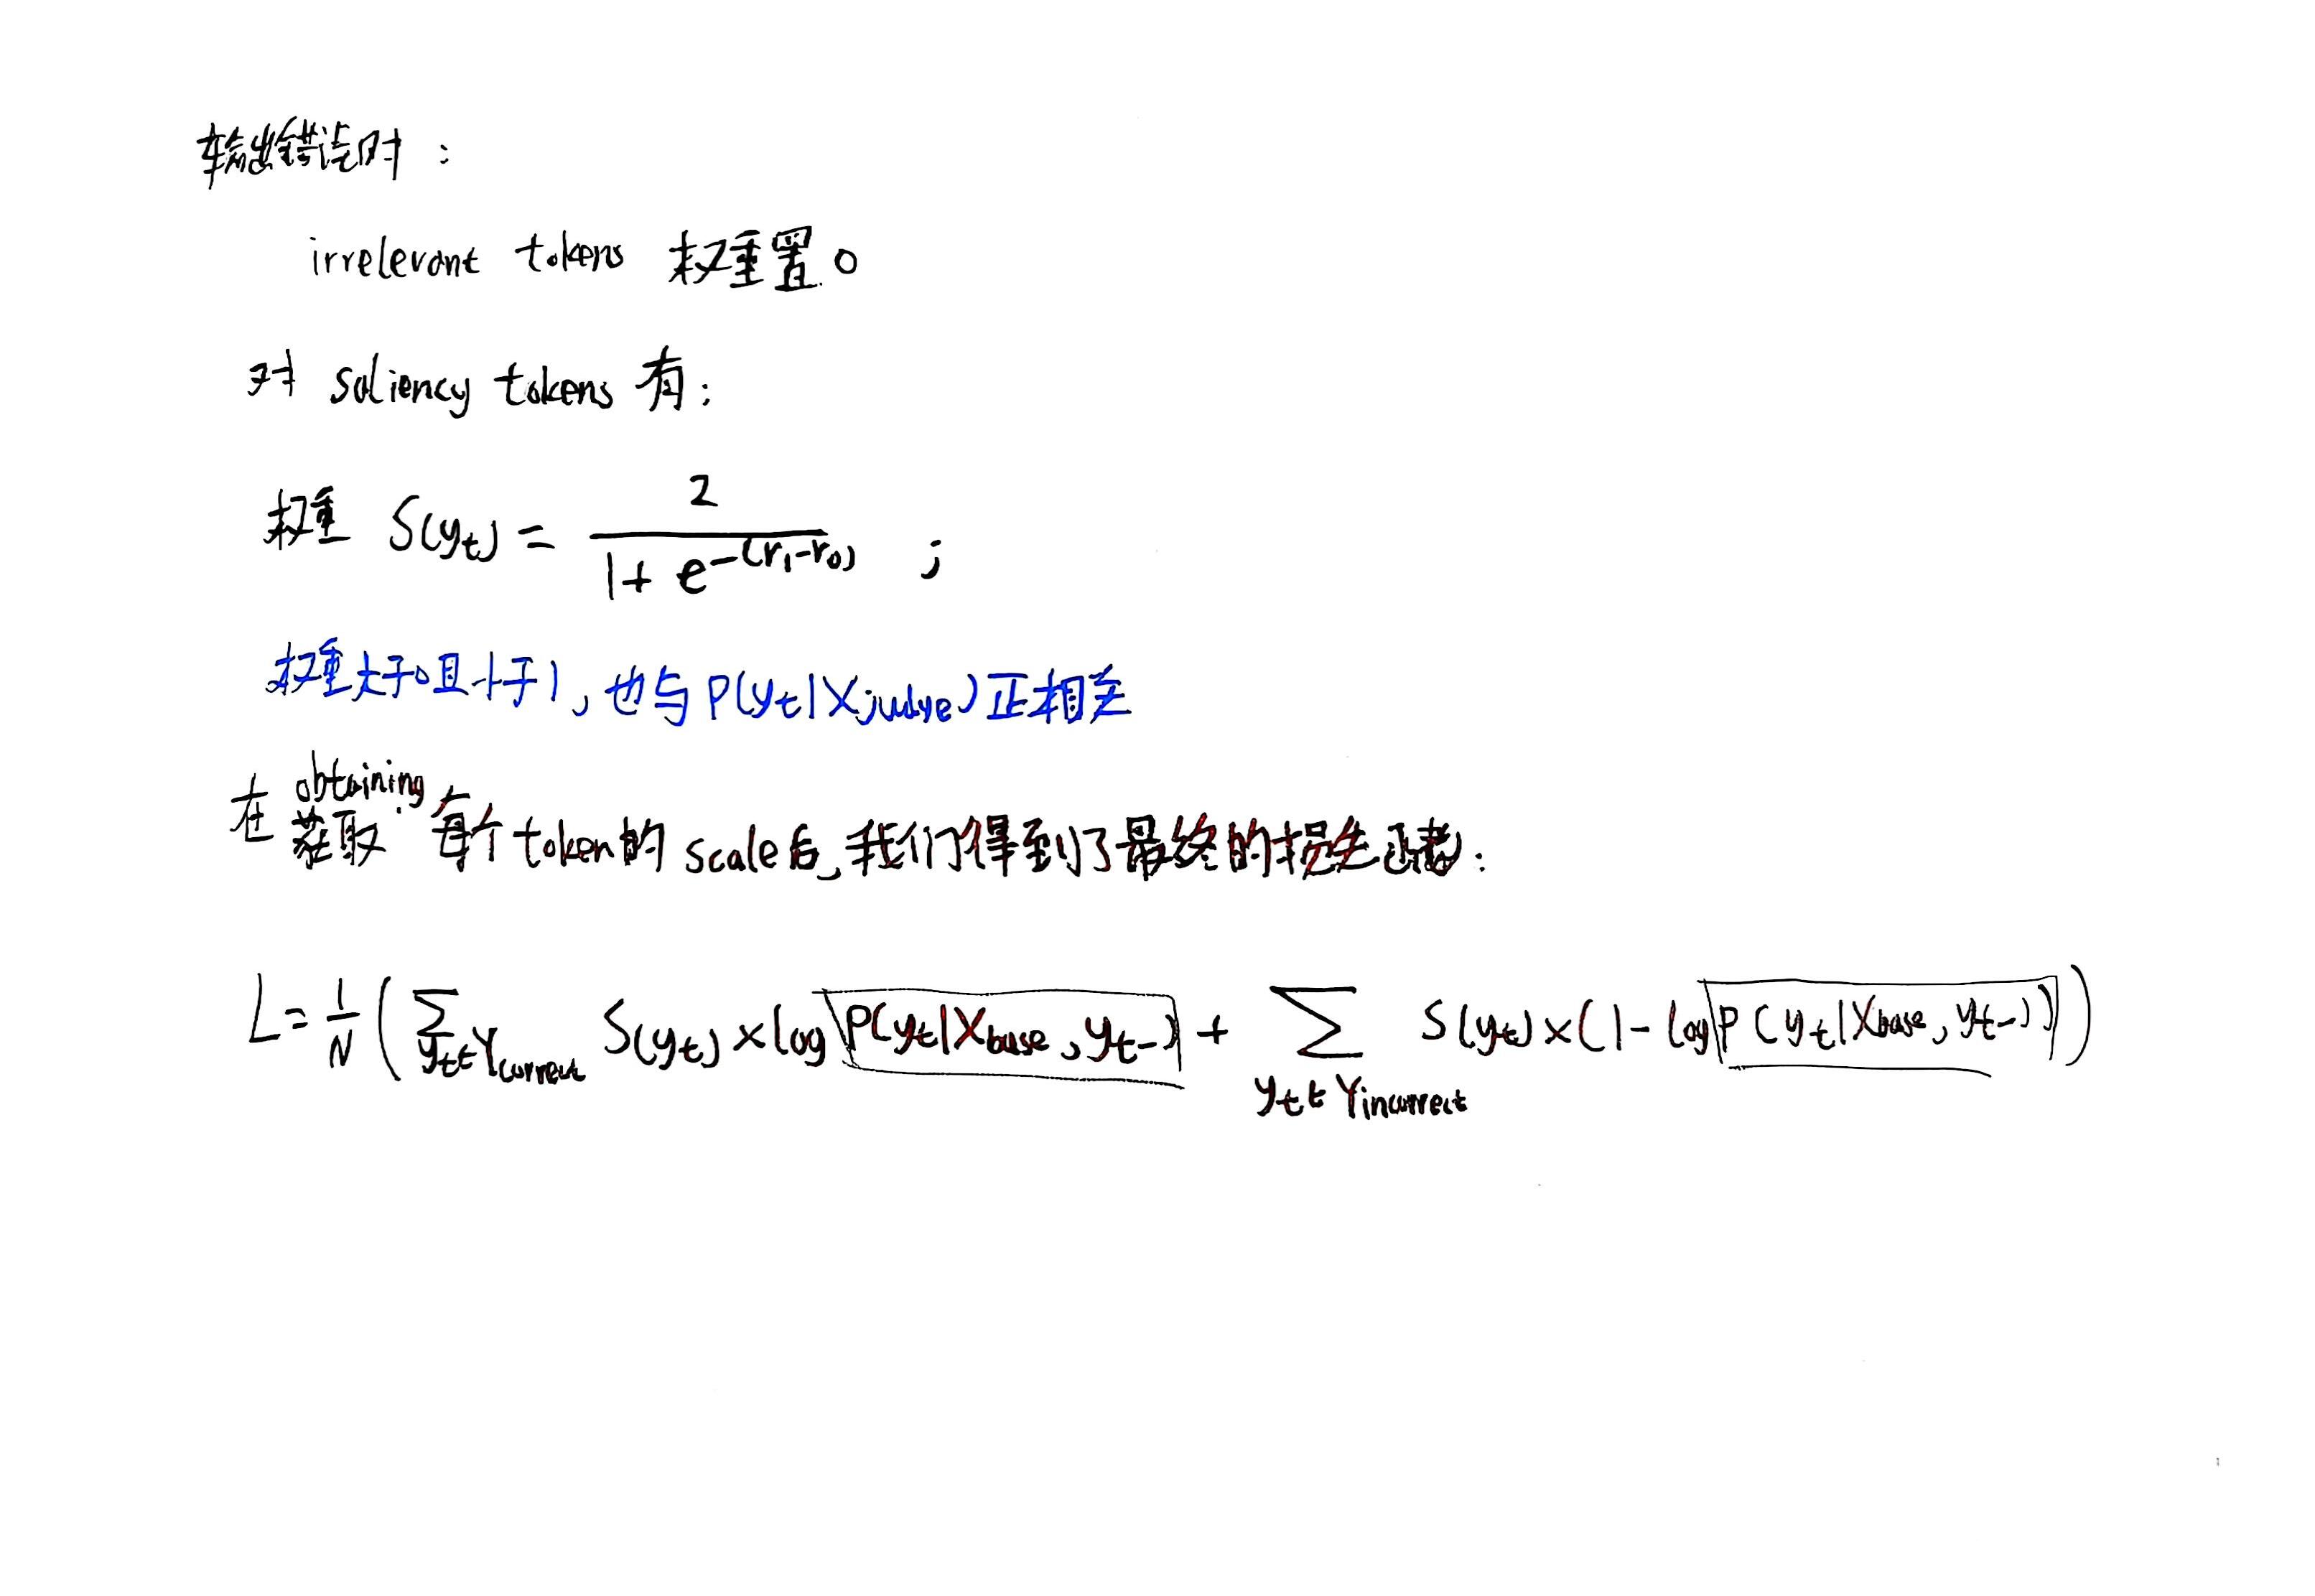 输出错误时：
irrelevant tokens 权重置0
对 saliency tokens 有：
权重 S(y_t) = 2 / (1 + e^{-(r_1-r_0)}) ;
权重大于0且小于1，也与 P(y_t|X_judge) 正相关
obtaining
在获取每个token的 scale后，我们得到了最终的损失函数：
L = 1/N ( ∑_{y_t∈Y_correct} S(y_t) × log P(y_t|X_base, y_{t-}) + ∑_{y_t∈Y_incorrect} S(y_t) × (1 - log P(y_t|X_base, y_{t-})) )